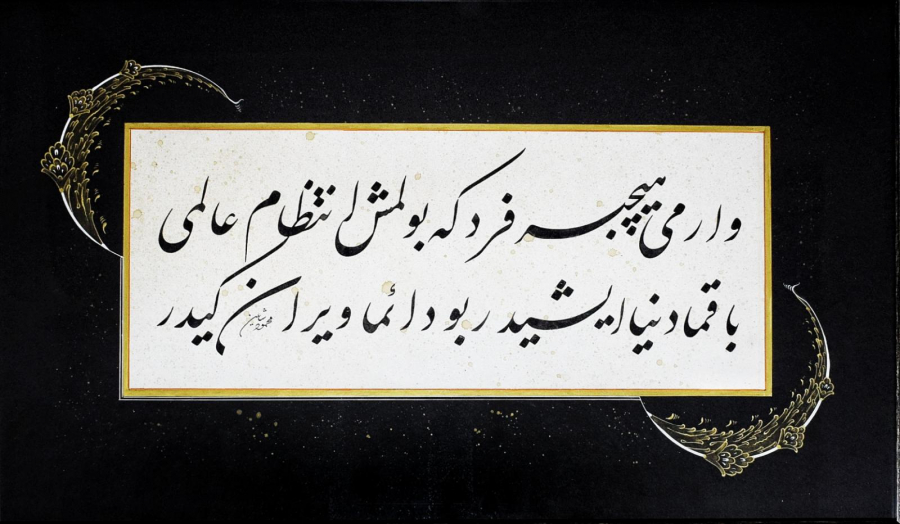 وارمی هیچ بر فرد که بولمش انتظام عالمی
باقمه دنیا ایشیدر بو دائما ویران كیدر
محمود شاهین